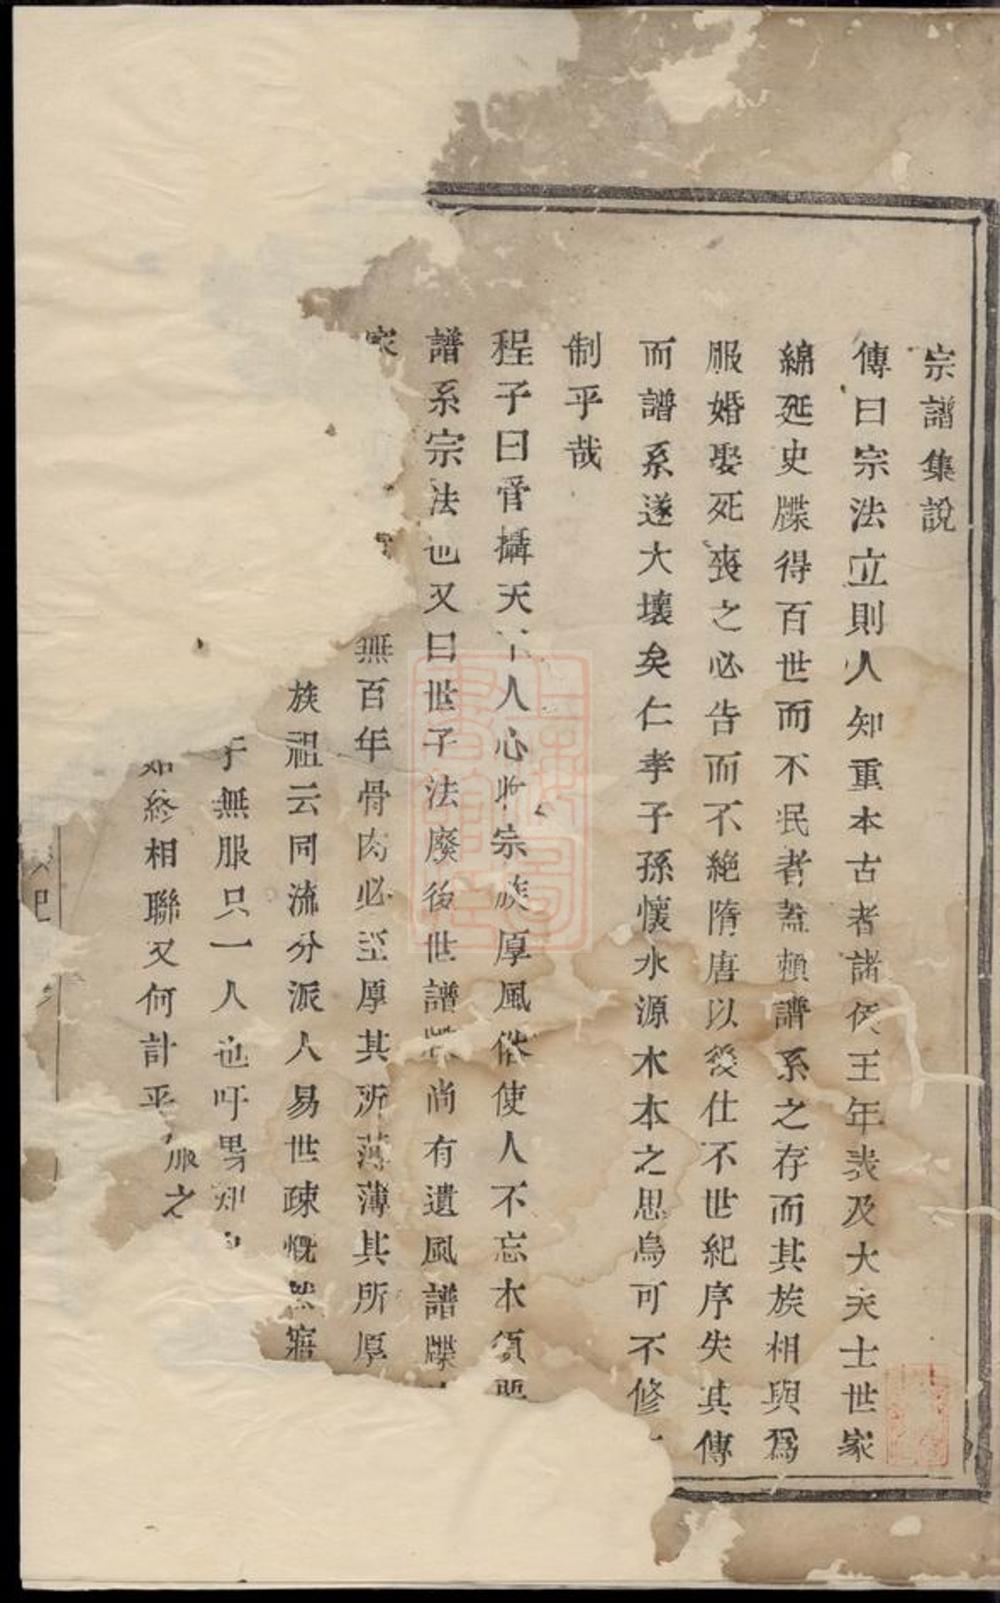 宗譜集說
傳曰宗法立則人知重本古者諸侯王年表及大夫士世家
綿延史牒得百世而不民者蓋頼譜系之存而其族相與爲
服婚娶死喪之必告而不絶隋唐以後仕不世紀序失其傳
而譜系遂大壞矣仁孝子孫懷水源木本之思烏可不修
制乎哉
程子曰管攝天下人心收宗族厚風俗使人不忘本須
譜系宗法也又曰世子法廢後世譜牒尚有遺風譜牒
家
無百年骨肉必至厚其所薄薄其所厚
族祖云同流分派人易世疎慨然寤
于無服只一人也吁曷知
始終相聯又何計乎服之